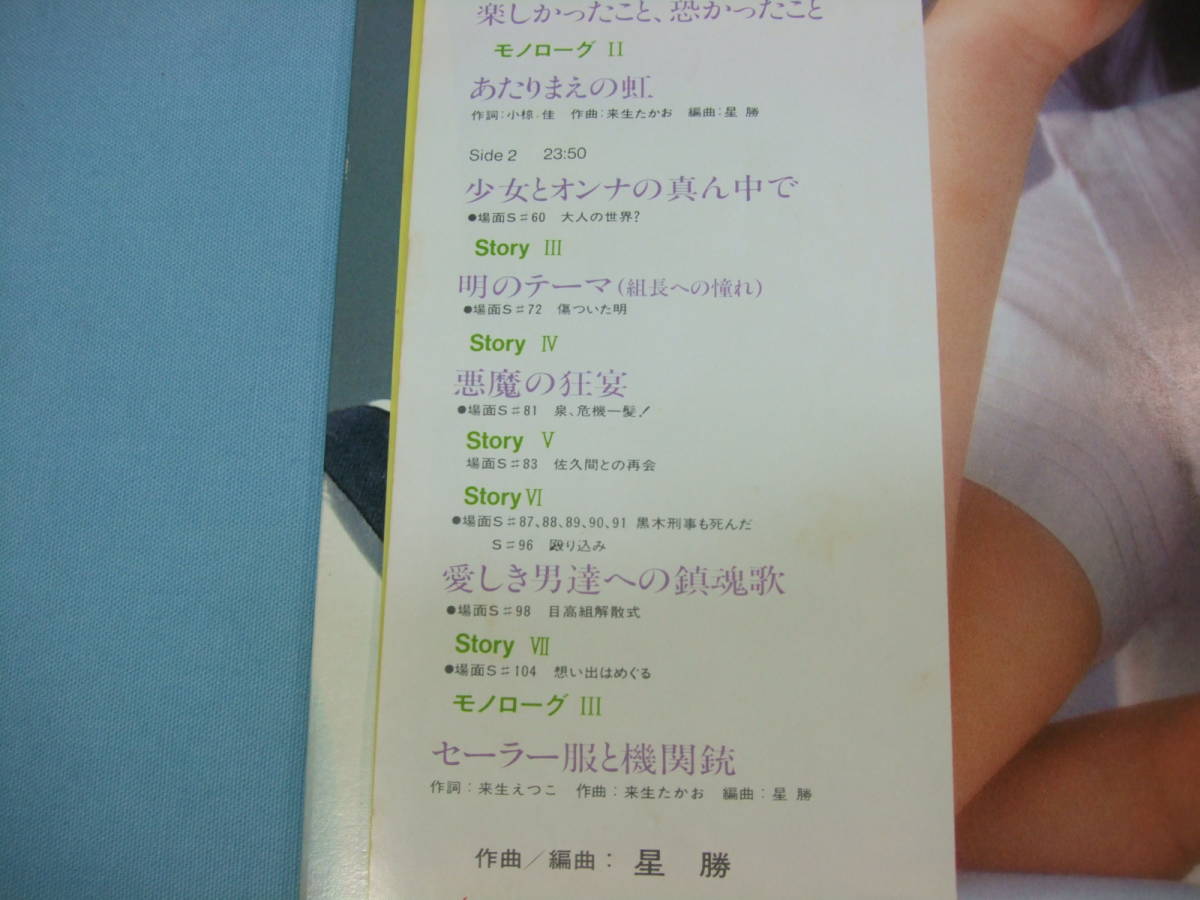 楽しかったこと、恐かったこと
モノローグ II
あたりまえの虹
作詞:小椋 佳 作曲:来生たかお 編曲:星 勝
Side 2 23:50
少女とオンナの真ん中で
●場面S♯60 大人の世界?
Story III
明のテーマ(組長への憧れ)
●場面S♯72 傷ついた明
Story IV
悪魔の狂宴
●場面S♯81 泉、危機一髪!
Story V
場面S♯83 佐久間との再会
Story VI
●場面S♯87、88、89、90、91 黒木刑事も死んだ
S♯96 殴り込み
愛しき男達への鎮魂歌
●場面S♯98 目高組解散式
Story VII
●場面S♯104 想い出はめぐる
モノローグ III
セーラー服と機関銃
作詞:来生えつこ 作曲:来生たかお 編曲:星 勝
作曲/編曲: 星 勝